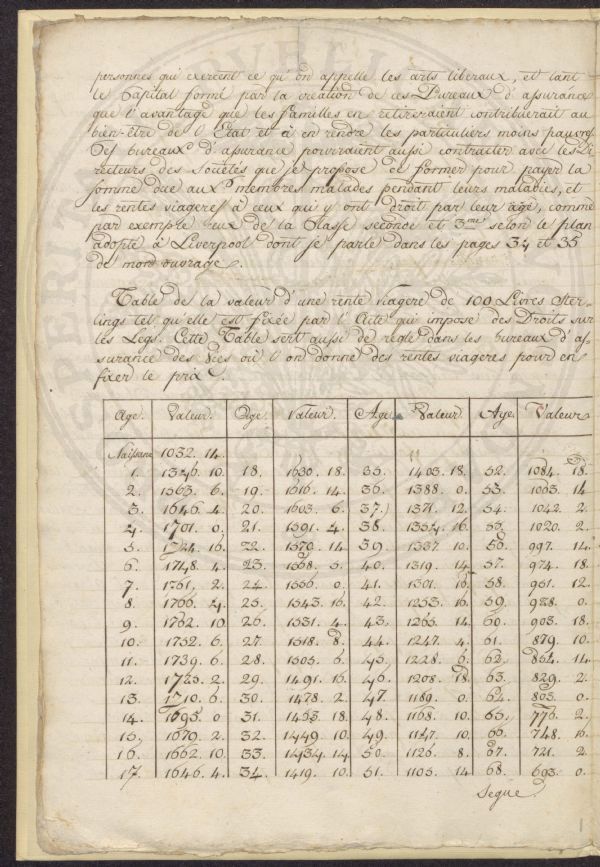 personnes qui exercent ce qu'on appelle les arts liberaux, et tant
le Capital formé par la creation de ces Bureaux d'assurance
que l'avantage que les familles en retireraient contribuerait au
bien-être de l'Etat et à en rendre les particuliers moins pauvres.
Ces bureaux d'assurance pourraient aussi contracter avec les Di-
recteurs des Societés que je propose de former pour payer la
somme due aux membres malades pendant leurs maladies, et
les rentes viageres à ceux qui y ont droit par leur age, comme
par exemple ceux de la Classe seconde et 3me selon le plan
adopté à Liverpool dont je parle dans les pages 34 et 35
de mon ouvrage.
Table de la valeur d'une rente viagere de 100 Livres Ster-
lings tel qu'elle est fixée par l'Acte qui impose des Droits sur
les Legs. Cette Table sert aussi de regle dans les bureaux d'as-
surance des Vies où l'on donne des rentes viageres pour en
fixer le prix.
Age. Valeur. Age. Valeur. Age. Valeur. Age. Valeur
Naissance 1032. 14.
1. 1346. 10 18. 1630. 18. 35. 1403. 18. 52. 1084. 18.
2. 1563. 6. 19. 1616. 14. 36. 1388. 0. 53. 1063. 14
3. 1646. 4. 20. 1603. 6. 37. 1371. 12. 54. 1042. 2.
4. 1701. 0. 21. 1591. 4. 38. 1354. 16. 55. 1020. 2.
5. 1724. 16. 22. 1579. 14. 39. 1337. 10. 56. 997. 14.
6. 1748. 4. 23. 1568. 5. 40. 1319. 14. 57. 974. 18.
7. 1761. 2. 24. 1556. 0. 41. 1301. 16. 58. 951. 12.
8. 1766. 4. 25. 1543. 16. 42. 1283. 16. 59. 928. 0.
9. 1762. 10. 26. 1531. 4. 43. 1265. 14. 60. 903. 18.
10. 1752. 6. 27. 1518. 8. 44. 1247. 4. 61. 879. 10.
11. 1739. 6. 28. 1505. 6. 45. 1228. 6. 62. 854. 14.
12. 1725. 2. 29. 1491. 16. 46. 1208. 18. 63. 829. 2.
13. 1710. 6. 30. 1478. 2. 47. 1189. 0. 64. 803. 0.
14. 1695. 0 31. 1463. 18. 48. 1168. 10. 65. 776. 2.
15. 1679. 2. 32. 1449. 10. 49. 1147. 10. 66. 748. 16.
16. 1662. 10. 33. 1434. 14. 50. 1126. 8. 67. 721. 2.
17. 1646. 4. 34. 1419. 10. 51. 1105. 14. 68. 693. 0.
Segue